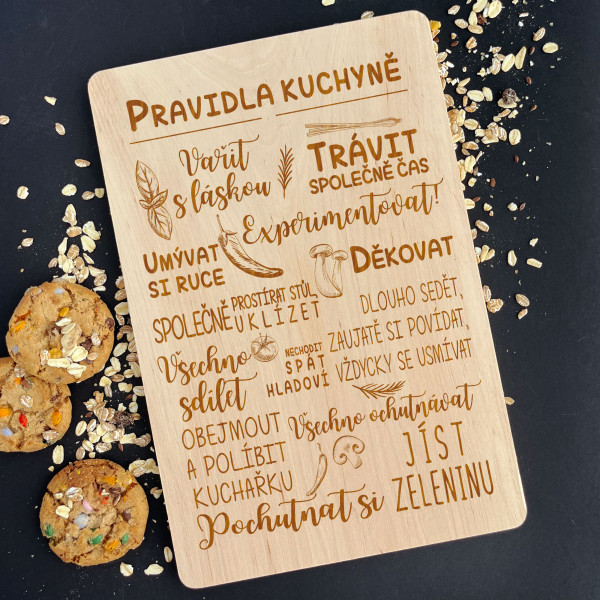 PRAVIDLA KUCHYNĚ
Vařit
s láskou
TRÁVIT
SPOLEČNĚ ČAS
Experimentovat!
UMÝVAT
SI RUCE
DĚKOVAT
SPOLEČNĚ
PROSTÍRAT STŮL
UKLÍZET
DLOUHO SEDĚT,
ZAUJATĚ SI POVÍDAT,
VŽDYCKY SE USMÍVAT
Všechno
sdílet
NECHODIT
SPÁT
HLADOVÍ
OBEJMOUT
A POLÍBIT
KUCHAŘKU
Všechno ochutnávat
JÍST
ZELENINU
Pochutnat si